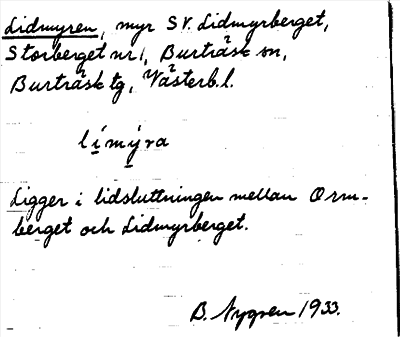 Lidmyren, myr SV. Lidmyrberget,
Storberget nr 1, Burträsk sn,
Burträsk tg, Västerb. l.
límýra
Ligger i lidsluttningen mellan Orm-
berget och Lidmyrberget.
B. Nygren 1933.